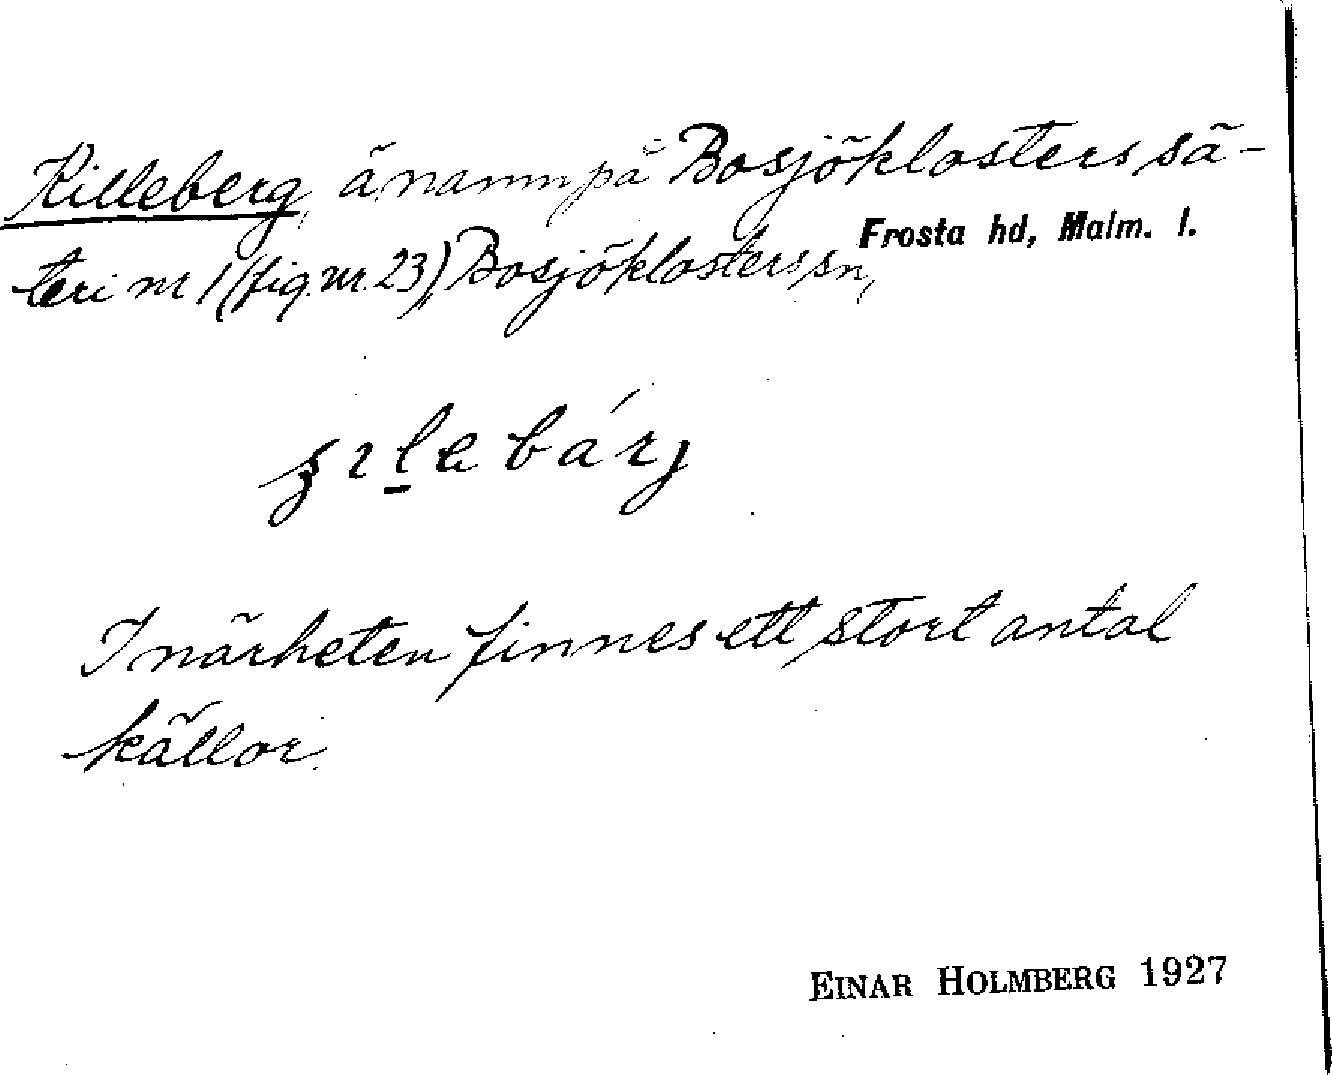 Killeberg, änamn på Bosjöklosters sä-
teri nr 1 (fig. nr. 23), Bosjöklosters sn,
Frosta hd, Malm. l.
I närheten finnes ett stort antal
källor.
EINAR HOLMBERG 1927